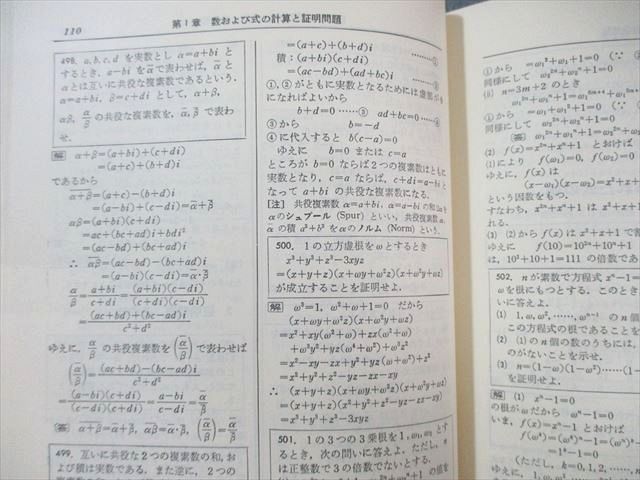 110
第1章 数および式の計算と証明問題
498. a, b, c, d を実数とし α=a+bi と
するとき, a-bi を ᾱ で表わせば, ᾱ と
αとは互いに共役な複素数であるという.
α=a+bi, β=c+di として, α+β,
αβ, α/β の共役な複素数を, ᾱ, β̄ で表わ
せ.
解 α+β=(a+bi)+(c+di)
=(a+c)+(b+d)i
であるから
=(a+c)-(b+d)i
=(a-bi)+(c-di)=ᾱ+β̄
αβ=(a+bi)(c+di)
=ac+(bc+ad)i+bdi²
=(ac-bd)+(bc+ad)i
=(ac-bd)-(bc+ad)i
=(a-bi)(c-di)=ᾱ·β̄
α/β=(a+bi)/(c+di)=(a+bi)(c-di)/(c+di)(c-di)
=((ac+bd)+(bc-ad)i)/(c²+d²)
ゆえに, α/β の共役複素数を で表わせば
=((ac+bd)-(bc-ad)i)/(c²+d²)
=(a-bi)(c+di)/(c-di)(c+di)=(a-bi)/(c-di)=ᾱ/β̄
499. 互いに共役な2つの複素数の和, お
よび積は実数である. また逆に, 2つの
=(a+c)+(b+d)i ………①
積:(a+bi)(c+di)
=(ac-bd)+(ad+bc)i ………②
①, ②がともに実数となるためには虚部が
になればよいから
b+d=0 ……③ ad+bc=0 ……④
③から b=-d
④に代入すると b(c-a)=0
ゆえに b=0 または c=a
ところが b=0 ならば2つの複素数はともに
実数となり, c=a ならば, c+di=a-bi と
なって a+bi の共役な複素数になる.
〔注〕 共役複素数 α=a+bi, ᾱ=a-bi の和2aを
αのシュプール (Spur) といい, 共役複素数 α,
ᾱ の積 a²+b² を αのノルム (Norm) という.
500. 1の立方虚根をωとするとき
x³+y³+z³-3xyz
=(x+y+z)(x+ωy+ω²z)(x+ω²y+ωz)
が成立することを証明せよ.
解 ω³=1, ω²+ω+1=0 だから
(x+ωy+ω²z)(x+ω²y+ωz)
=x²+xy(ω²+ω)+zx(ω²+ω)
+ω³y²+yz(ω⁴+ω²)+ω³z²
=x²-xy-zx+y²+yz(ω+ω²)+z²
=x²+y²+z²-yz-zx-xy
∴ (x+y+z)(x+ωy+ω²z)(x+ω²y+ωz)
=(x+y+z)(x²+y²+z²-yz-zx-xy)
=x³+y³+z³-3xyz
501. 1の3つの3乗根を 1, ω₁, ω₂ とす
るとき, 次の問いに答えよ. ただし, n
は正整数で3の倍数でないとする.
①から
同様にして
(ii) n=3m+2 のとき
同様にして
(2)
①により f(ω₁)=0, f(ω₂)=0
ゆえに, f(x) は
(x-ω₁)(x-ω₂)=x²+x+
という因数をもつ.
すなわち,
(3) (2)から f(x) は x²+x+1 で割
ゆえに f(10)=10²ⁿ+10ⁿ+1
は, 10²+10+1=111 の倍数であ
502. n が素数で方程式
ωを根にもつとする. このとき
いに答えよ.
この方程式の根であることを
(2) (1)の n 個の数のうちには,
のがないことを示せ.
(3) n=(1-ω)(1-ω²)……(1-
を証明せよ.
解 (1) xⁿ-1=0
の根がωだから ωⁿ-1=0
いま, f(x)=xⁿ-1 とおけば